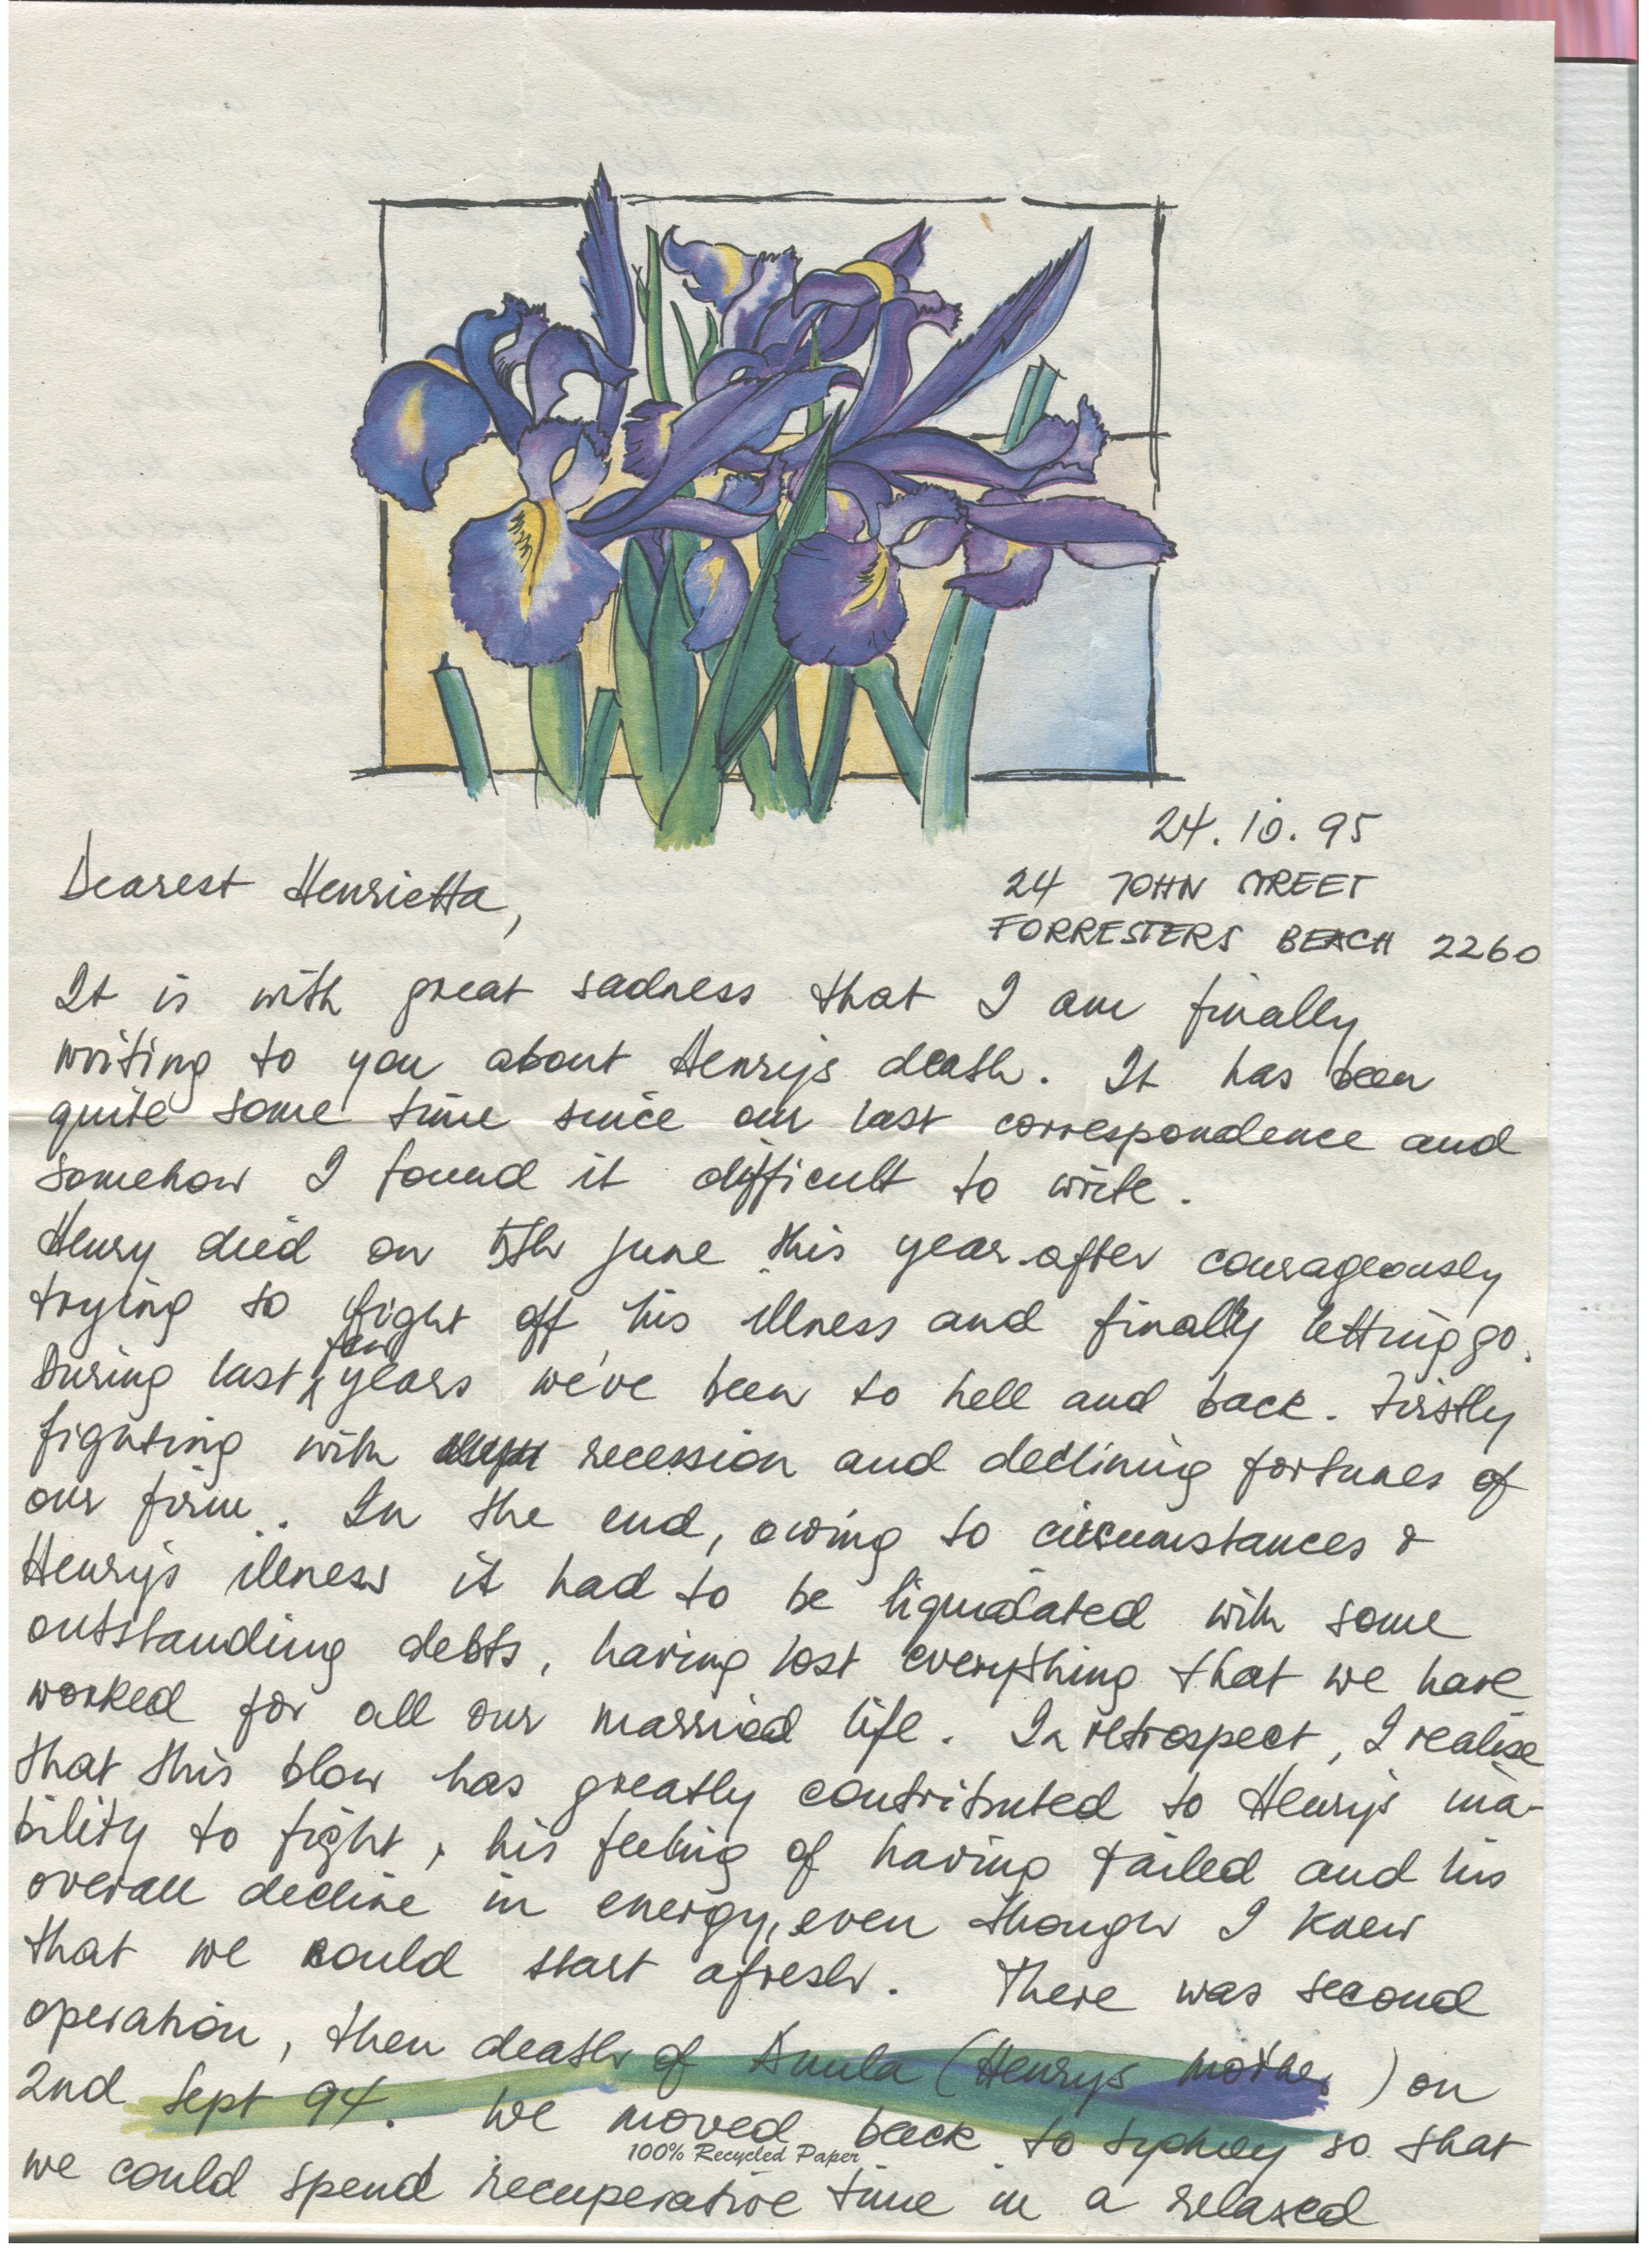 24.10.95
24 JOHN STREET
FORRESTERS BEACH 2260
Dearest Henrietta,
It is with great sadness that I am finally
writing to you about Henrys death. It has been
quite some time since our last correspondence and
somehow I found it difficult to write.
Henry died on 5th June this year after courageously
trying to fight off his illness and finally letting go.
During last few years we've been to hell and back. Firstly
fighting with recession and declining fortunes of
our firm.. In the end, owing to circumstances &
Henrys illness it had to be liquidated with some
outstanding debts, having lost everything that we have
worked for all our married life. In retrospect, I realise
that this blow has greatly contributed to Henrys ina-
bility to fight, his feeling of having failed and his
overall decline in energy, even though I knew
that we could start afresh. There was second
operation, then death of (Henrys mother) on
2nd Sept 94. We moved back to Sydney so that
100% Recycled Paper
we could spend recuperative time in a relaxed